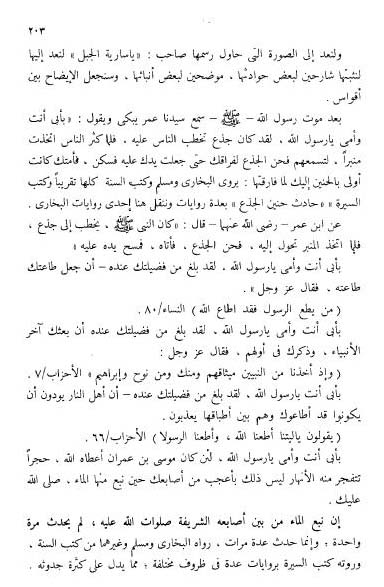 ٢٠٣
ولنعد إلى الصورة التى حاول رسمها صاحب : «ياسارية الجبل» لنعد إليها
لنثبتها شارحين لبعض حوادثها، موضحين لبعض أنبائها ، وسنجعل الإيضاح بين
أقواس .
بعد موت رسول الله – ﷺ – سمع سيدنا عمر يبكى ويقول : «بأبى أنت
وأمى يارسول الله ، لقد كان جذع تخطب الناس عليه ، فلما كثر الناس اتخذت
منبراً ، لتسمعهم فحن الجذع لفراقك حتى جعلت يدك عليه فسكن ، فأمتك كانت
أولى بالحنين إليك لما فارقتها : يروى البخارى ومسلم وكتب السنة كلها تقريباً وكتب
السيرة «حادث حنين الجذع» بعدة روايات وننقل هنا إحدى روايات البخارى .
عن ابن عمر – رضى الله عنهما – قال : «كان النبى ﷺ ، يخطب إلى جذع ،
فلما اتخذ المنبر تحول إليه ، فحن الجذع ، فأتاه ، فمسح يده عليه»
بأبى أنت وأمى يارسول الله ، لقد بلغ من فضيلتك عنده – أن جعل طاعتك
طاعته ، فقال عز وجل» .
( من يطع الرسول فقد اطاع الله ) النساء/٨٠.
بأبى أنت وأمى يارسول الله ، لقد بلغ من فضيلتك عنده أن بعثك آخر
الأنبياء ، وذكرك فى أولهم ، فقال عز وجل :
(وإذ أخذنا من النبيين ميثاقهم ومنك ومن نوح وإبراهيم» الأحزاب/٧.
بأبى أنت يارسول الله ، لقد بلغ من فضيلتك عنده – أن أهل النار يودون أن
يكونوا قد أطاعوك وهم بين أطباقها يعذبون .
( يقولون ياليتنا أطعنا الله ، وأطعنا الرسولا ) الأحزاب/٦٦.
بأبى أنت وأمى يارسول الله ، لئن كان موسى بن عمران أعطاه الله ، حجراً
تتفجر منه الأنهار ليس ذلك بأعجب من أصابعك حين نبع منها الماء ، صلى الله
عليك .
إن نبع الماء من بين أصابعه الشريفة صلوات الله عليه ، لم يحدث مرة
واحدة ؛ وإنما حدث عدة مرات ، رواه البخارى ومسلم وغيرهما من كتب السنة ،
وروته كتب السيرة بروايات عدة فى ظروف مختلفة ؛ مما يدل على كثرة حدوثه .